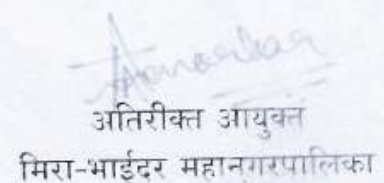 अतिरीक्त आयुक्त
मिरा-भाईदर महानगरपालिका